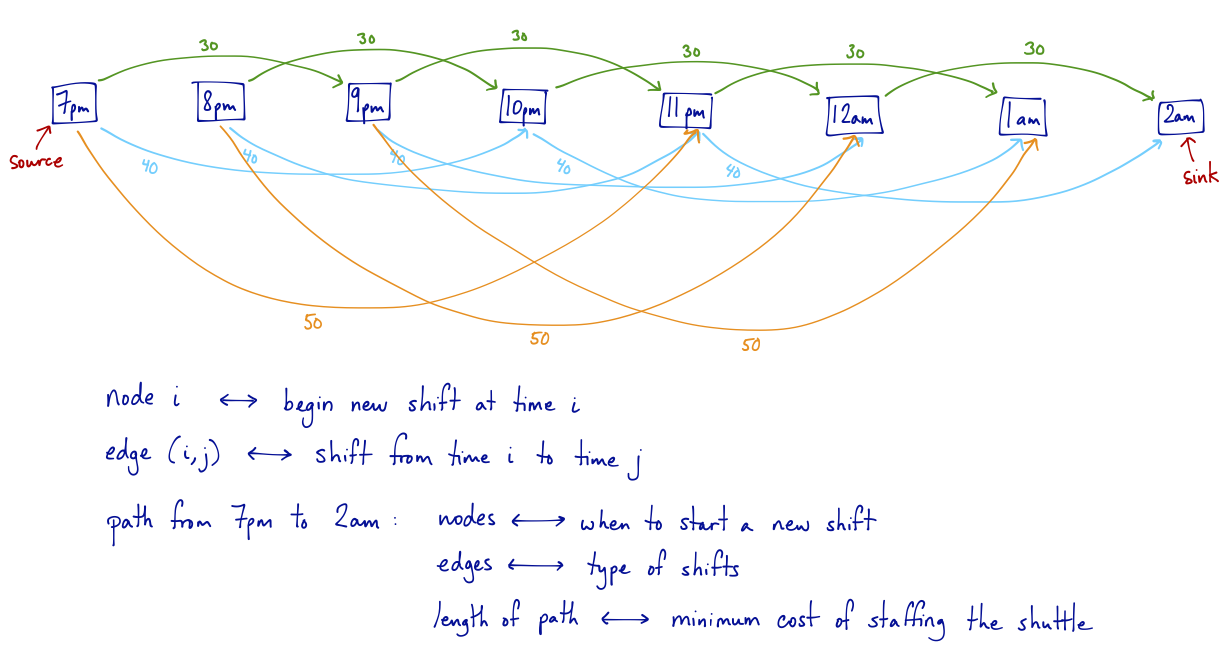 30 30 30 30 30 30
7pm 8pm 9pm 10pm 11pm 12am 1am 2am
Source 40 40 40 40 40 sink
50 50 50
node i ⟷ begin new shift at time i
edge (i,j) ⟷ shift from time i to time j
path from 7pm to 2am : nodes ⟷ when to start a new shift
edges ⟷ type of shifts
length of path ⟷ minimum cost of staffing the shuttle